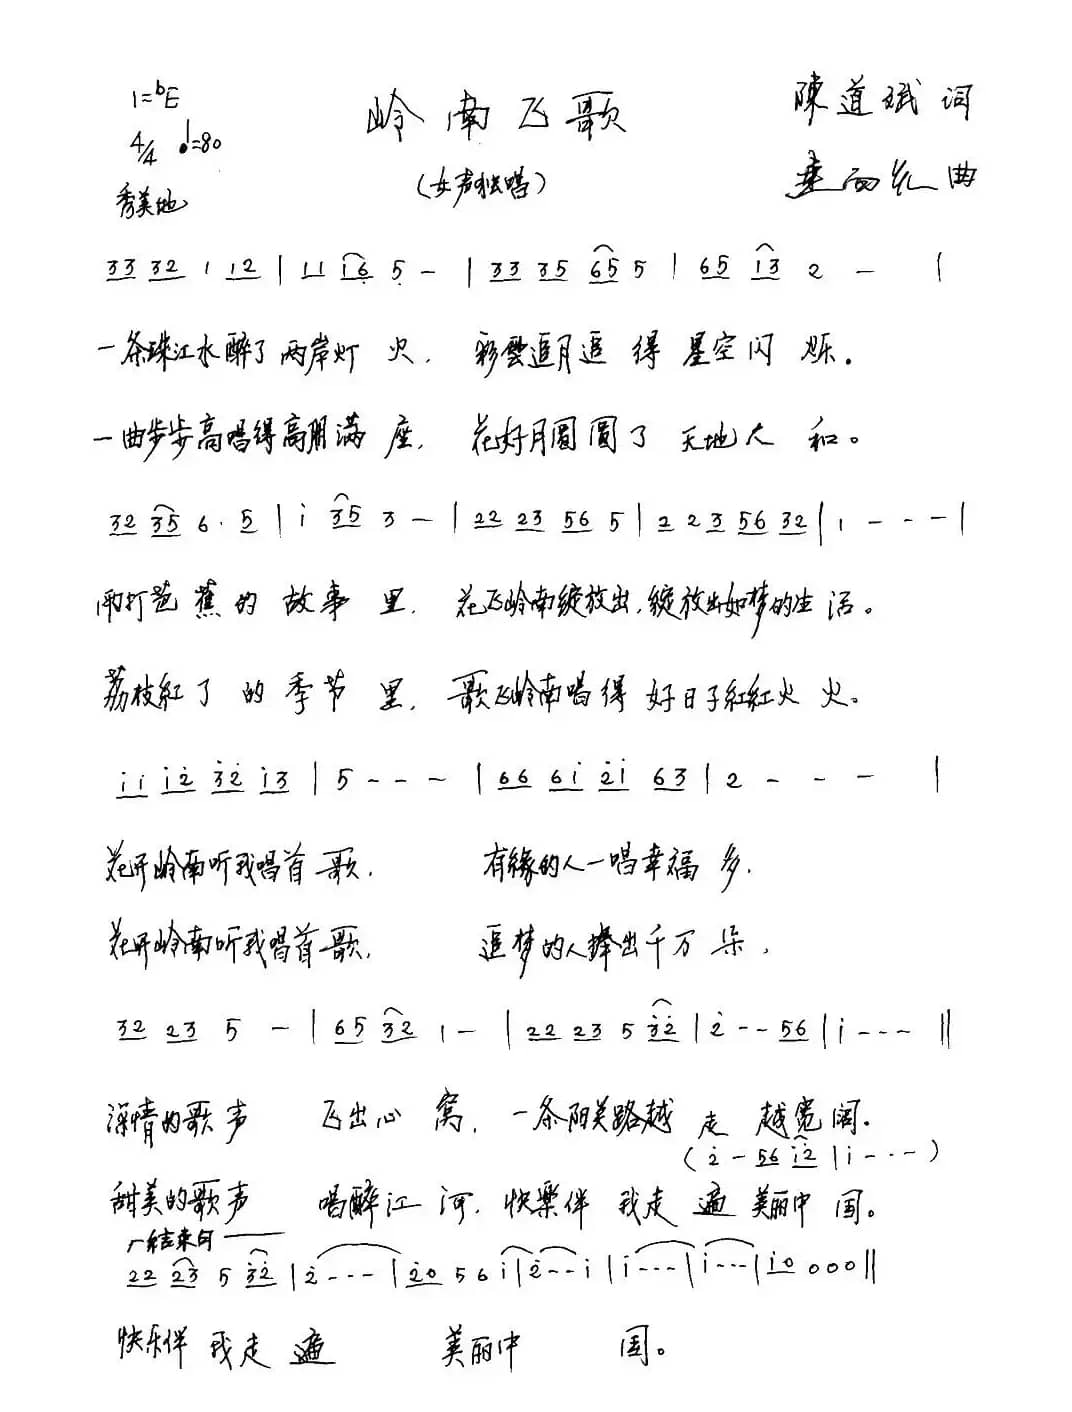 1=bE
岭南飞歌
陳道斌 词
4/4 ♩=80
(女声独唱)
曲
秀美地
33 32 1 12 | 11 i6 5 - | 33 35 65 5 | 65 13 2 - |
一条珠江水醉了两岸灯火，彩雲追月追得星空闪烁。
一曲步步高唱得高朋满座，花好月圆圆了天地人和。
32 35 6. 5 | i 35 3 - | 22 23 56 5 | 2 2 3 56 32 | 1 - - - |
雨打芭蕉的故事里，花飞岭南绽放出，绽放出如梦的生活。
荔枝紅了的季节里，歌飞岭南唱得好日子紅紅火火。
ii i2 32 i3 | 5 - - - | 66 6i 2i 63 | 2 - - - |
花开岭南听我唱首歌，有緣的人一唱幸福多，
花开岭南听我唱首歌，追梦的人捧出千万朵，
32 23 5 - | 65 32 1 - | 22 23 5 32 | 2 - - 56 | i - - - ‖
深情的歌声飞出心窝，一条阳关路越走越宽阔。
(2 - 56 i2 | i - - - )
甜美的歌声唱醉江河，快樂伴我走遍美丽中国。
结束句
22 23 5 32 | 2 - - - | 20 5 6 i | 2 - - i | i - - - | i - - - | i0 0 0 0 ‖
快乐伴我走遍美丽中国。